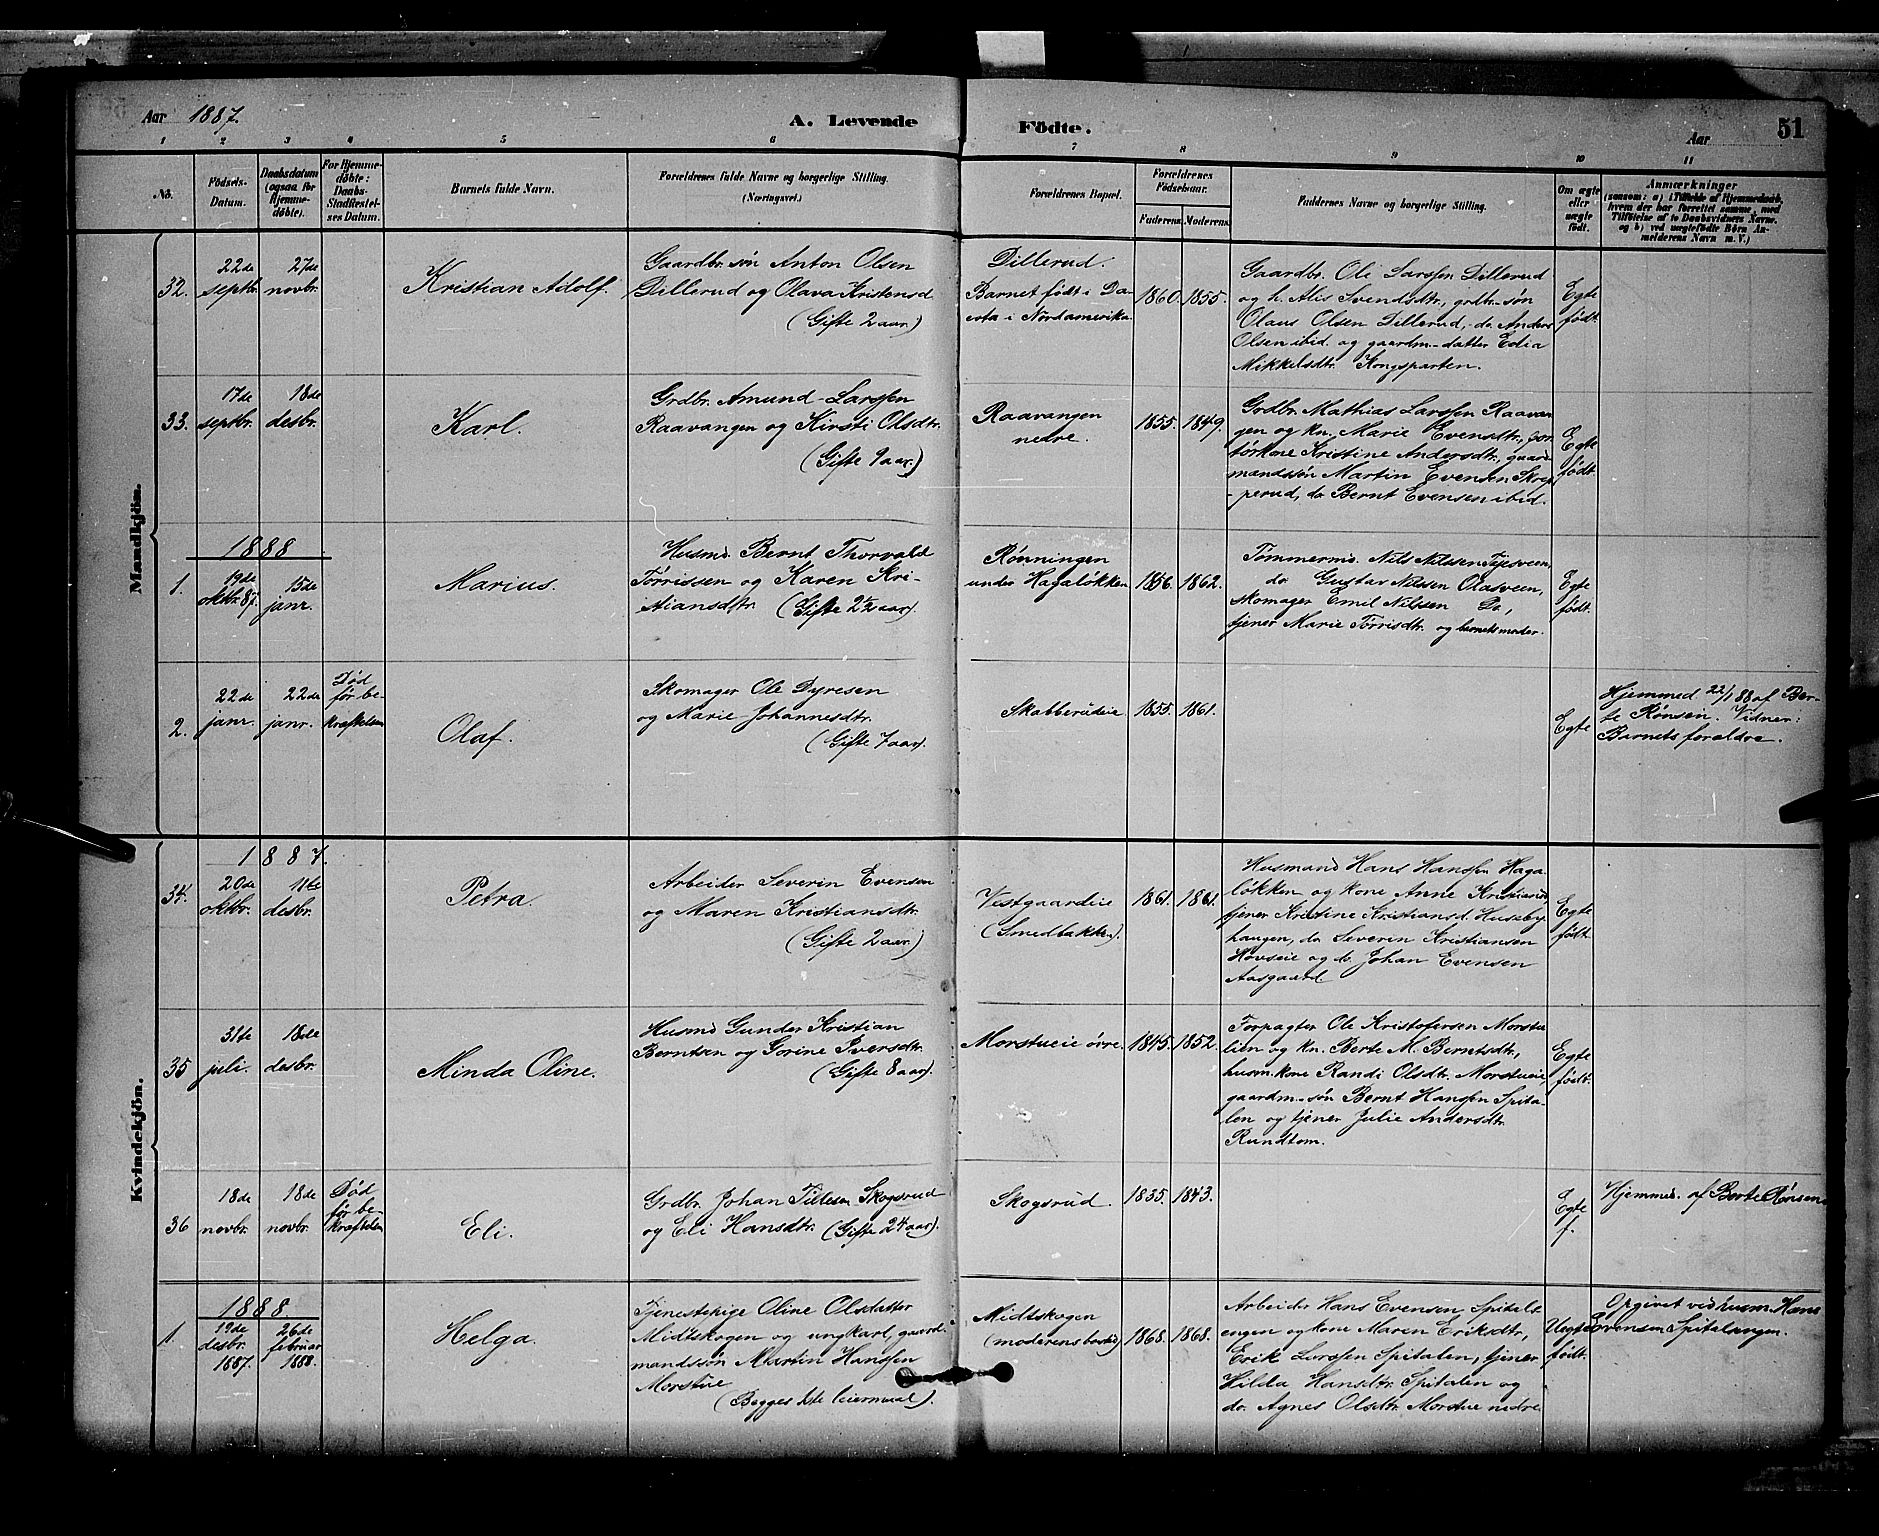 Aar 1887.
A. Levende Födte.
Aar
51
1 2 3 4 5 6 7 8 9 10 11
No.
Födsels-
Datum.
Daabsdatum
(ogsaa for
Hjemme-
döbte).
For Hjemme-
döbte:
Daabs-
Stadfæstel-
ses Datum.
Barnets fulde Navn.
Forældrenes fulde Navne og borgerlige Stilling.
(Næringsvei.)
Forældrenes Bopæl.
Forældrenes
Födselsaar.
Faderens. Moderens.
Faddernes Navne og borgerlige Stilling.
Om ægte
eller
uægte
födt.
Anmærkninger
(saasom: a) i Tilfælde af Hjemmedaab,
hvem der har forrettet samme, med
Tilföielse af to Daabsvidners Navne.
og b) ved uægtefödte Börn An-
melderens Navn m. V.)
Mandkjön.
32.
22de
septbr.
27de
novbr.
Kristian Adolf.
Gaardbr. søn Anton Olsen
Dillerud og Olava Kristensd.
(Gifte 2 aar)
Dillerud.
Barnet født i Da-
cota i Nordamerika.
1860. 1855.
Gaardbr. Ole Larssen Dillerud
og h. Alis Svendsdtr., grdbr. søn
Olaus Olsen Dillerud, do. Anders
Olsen ibid. og gaardm.-datter Edia
Mikkelsdtr. Kongsparten.
Egte
født.
33.
17de
septbr.
18de
desbr.
Karl.
Grdbr. Amund Larssen
Raavangen og Kirsti Olsdtr.
(Gifte 9 aar.)
Raavangen
nedre.
1855. 1849.
Grdbr. Mathias Larssen Raavan-
gen og kn. Marie Evensdtr.,
Kristine Andersdtr., gaard-
mandssøn Martin Evensen Skrep-
perud, do Bernt Evensen ibid.
Egte
født.
1888
1.
19de
oktbr. 87.
15de
janr.
Marius.
Husmd. Bernt Thorvald
Tørrissen og Karen Kri-
stiansdtr. (Gifte 2 1/2 aar)
Rønningen
under Hagaløkken
1856. 1862.
Tømmermd. Nils Nilssen
do. Gustav Nilssen Olasveen,
skomager Emil Nilssen Do.,
tjener Marie Tørrisdtr. og barnets moder.
Egte
født.
2.
22de
janr.
22de
janr.
Død
før be-
kræftelsen
Olaf.
Skomager Ole Dyresen
og Marie Johannesdtr.
(Gifte 7 aar).
Skabberudeie.
1855. 1861.
Egte
Hjemmed. 22/1 88 af Ber-
te Rønsen. Vidner:
Barnets forældre.
Kvindekjön.
1887.
34.
20de
oktbr.
11te
desbr.
Petra.
Arbeider Severin Evensen
og Maren Kristiansdtr.
(Gifte 2 aar.)
Vestgaardeie
(Smedbakken).
1861. 1861.
Husmand Hans Hanssen Haga-
løkken og kone Anne
tjener Kristine Kristiansd. Huseby-
haugen, do Severin Kristiansen
Hovseie og do. Johan Evensen
Aasgaard
Egte
født.
35
31te
juli.
18de
desbr.
Minda Oline.
Husmd Gunder Kristian
Berntsen og Gorine Iversdtr.
(Gifte 8 aar).
Morstueie øvre.
1845. 1852.
Forpagter Ole Kristofersen Morstu-
lien og kn. Berte M. Berntsdtr.,
husm.kone Randi Olsdtr. Morstueie
gaardm-søn Bernt Hanssen Spita-
len og tjener Julie Andersdtr.
Rundtom.
Egte
født.
36
18de
novbr.
18de
novbr.
Død
før be-
kræftelsen
Eli.
Grdbr. Johan Tillesen Skogsrud
og Eli Hansdtr. (Gifte 24 aar).
Skogsrud.
1835. 1843.
Egte
f.
Hjemmed. af Berte Rønsen
1888
1.
19de
desbr.
1887.
26de
februar
1888.
Helga.
Tjenestepige Oline Olsdatter
Midtskogen og ungkarl, gaard-
mandssøn Martin Hanssen
Morstue
(Begges 1ste leiermaal).
Midtskogen
(moderens bosted)
1868. 1868.
Arbeider Hans Evensen Spital-
engen og kone Maren Eriksdtr,
Erik Larssen Spitalen, tjener
Hilda Hansdtr. Spitalen og
do. Agnes Olsdtr. Morstue nedre
Uegte
født.
Opgivet ved husm. Hans
Evensen Spitalengen.